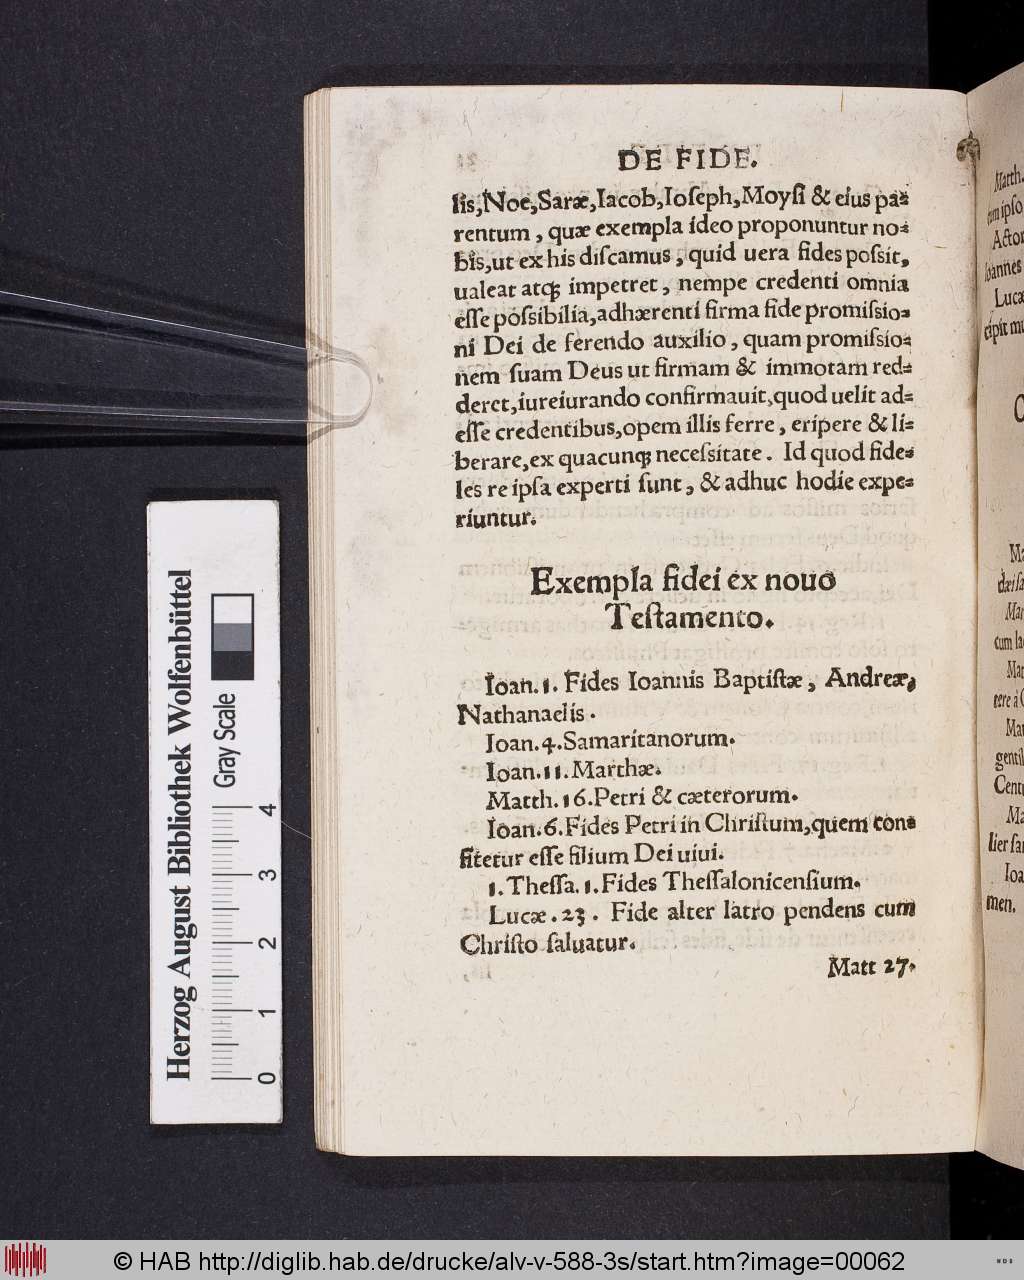 DE FIDE.
lis, Noe, Saræ, Iacob, Ioseph, Moysi & eius pa=
rentum, quæ exempla ideo proponuntur no=
bis, ut ex his discamus, quid uera fides possit,
ualeat atq; impetret, nempe credenti omnia
esse possibilia, adhærenti firma fide promissio=
ni Dei de ferendo auxilio, quam promissio=
nem suam Deus ut firmam & immotam red=
deret, iureiurando confirmauit, quod uelit ad=
esse credentibus, opem illis ferre, eripere & li=
berare, ex quacunq; necessitate. Id quod fide=
les re ipsa experti sunt, & adhuc hodie expe=
riuntur.
Exempla fidei ex nouo
Testamento.
Ioan. 1. Fides Ioannis Baptistæ, Andreæ,
Nathanaelis.
Ioan. 4. Samaritanorum.
Ioan. 11. Marthæ.
Matth. 16. Petri & cæterorum.
Ioan. 6. Fides Petri in Christum, quem con=
fitetur esse filium Dei uiui.
1. Thessa. 1. Fides Thessalonicensium.
Lucæ. 23. Fide alter latro pendens cum
Christo saluatur.
Matt 27.
Matth.
Actor
Ioannes
Lucæ
Herzog August Bibliothek Wolfenbüttel
Gray Scale
0 1 2 3 4
© HAB http://diglib.hab.de/drucke/alv-v-588-3s/start.htm?image=00062